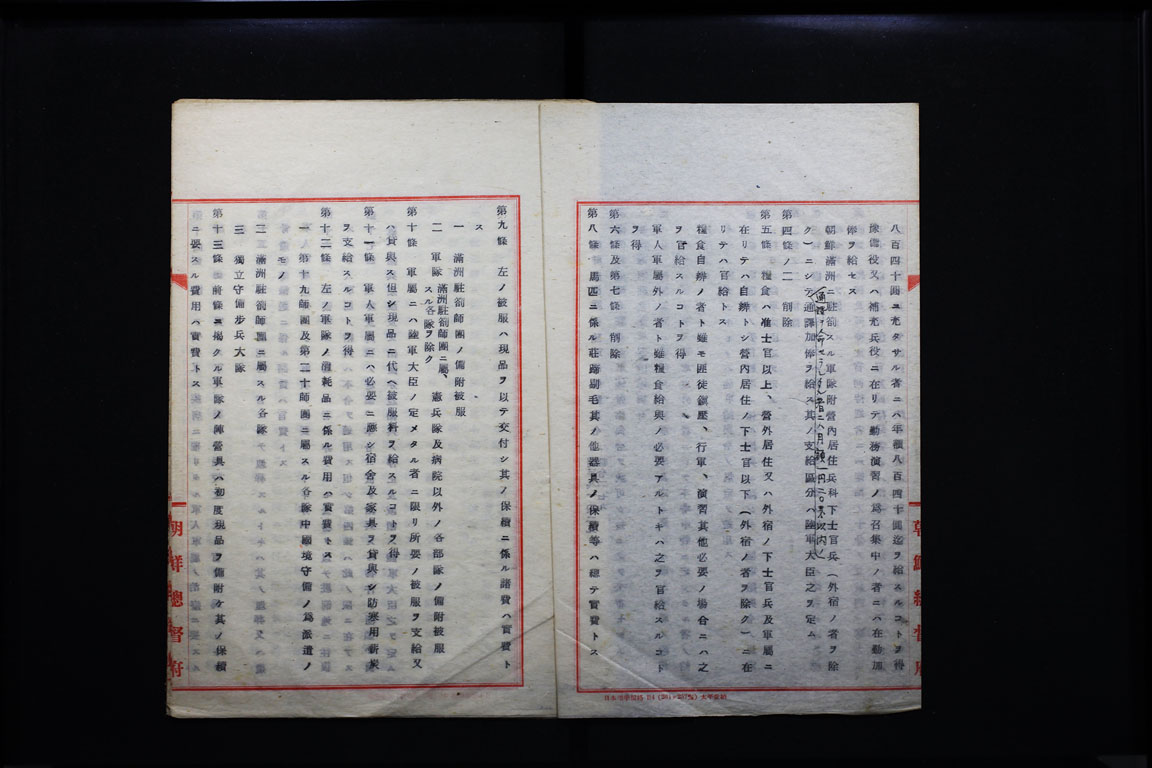 八百四十圓ニ充タサル者ニハ年額八百四十圓迄ヲ給スルコトヲ得
豫備役又ハ補充兵役ニ在リテ勤務演習ノ爲召集中ノ者ニハ在勤加
俸ヲ給セス
朝鮮滿洲ニ駐箚スル軍隊附營內居住兵科下士官兵(外宿ノ者ヲ除
ク)ニシテ通譯加俸ヲ給ス其ノ支給區分ハ陸軍大臣之ヲ定ム
通譯ヲ命セラレタル者ニハ月額一円二〇以內ノ
第四條ノ二 削除
第五條 糧食ハ准士官以上、營外居住又ハ外宿ノ下士官兵及軍屬ニ
在リテハ自辨トシ營內居住ノ下士官以下(外宿ノ者ヲ除ク)ニ在
リテハ官給トス
糧食自辨ノ者ト雖モ匪徒鎭壓、行軍、演習其他必要ノ場合ニハ之
ヲ官給スルコトヲ得
軍人軍屬外ノ者ト雖糧食給與ノ必要アルトキハ之ヲ官給スルコト
ヲ得
第六條及第七條 削除
第八條 馬匹ニ係ル裝蹄剔毛其ノ他器具ノ保續等ハ總テ實費トス
朝鮮總督府
第九條 左ノ被服ハ現品ヲ以テ交付シ其ノ保續ニ係ル諸費ハ實費ト
ス
一 滿洲駐箚師團ノ備附被服
二 軍隊(滿洲駐箚師團ニ屬スル各隊ヲ除ク)、憲兵隊及病院以外ノ各部隊ノ備附被服
第十條 軍屬ニハ陸軍大臣ノ定メタル者ニ限リ所要ノ被服ヲ支給又
ハ貸與ス但シ現品ニ代ヘ被服料ヲ給スルコトヲ得
第十一條 軍人軍屬ニハ必要ニ應シ宿舍及家具ヲ貸與シ防寒用薪炭
ヲ支給スルコトヲ得
第十二條 左ノ軍隊ノ消耗品ニ係ル費用ハ實費トス
一 第十九師團及第二十師團ニ屬スル各隊中國境守備ノ爲派遣ノ
モノ
二 滿洲駐箚師團ニ屬スル各隊
三 獨立守備步兵大隊
第十三條 前條ニ揭クル軍隊ノ陣營具ハ初度現品ヲ備附ケ其ノ保續
ニ要スル費用ハ實費トス
朝鮮總督府